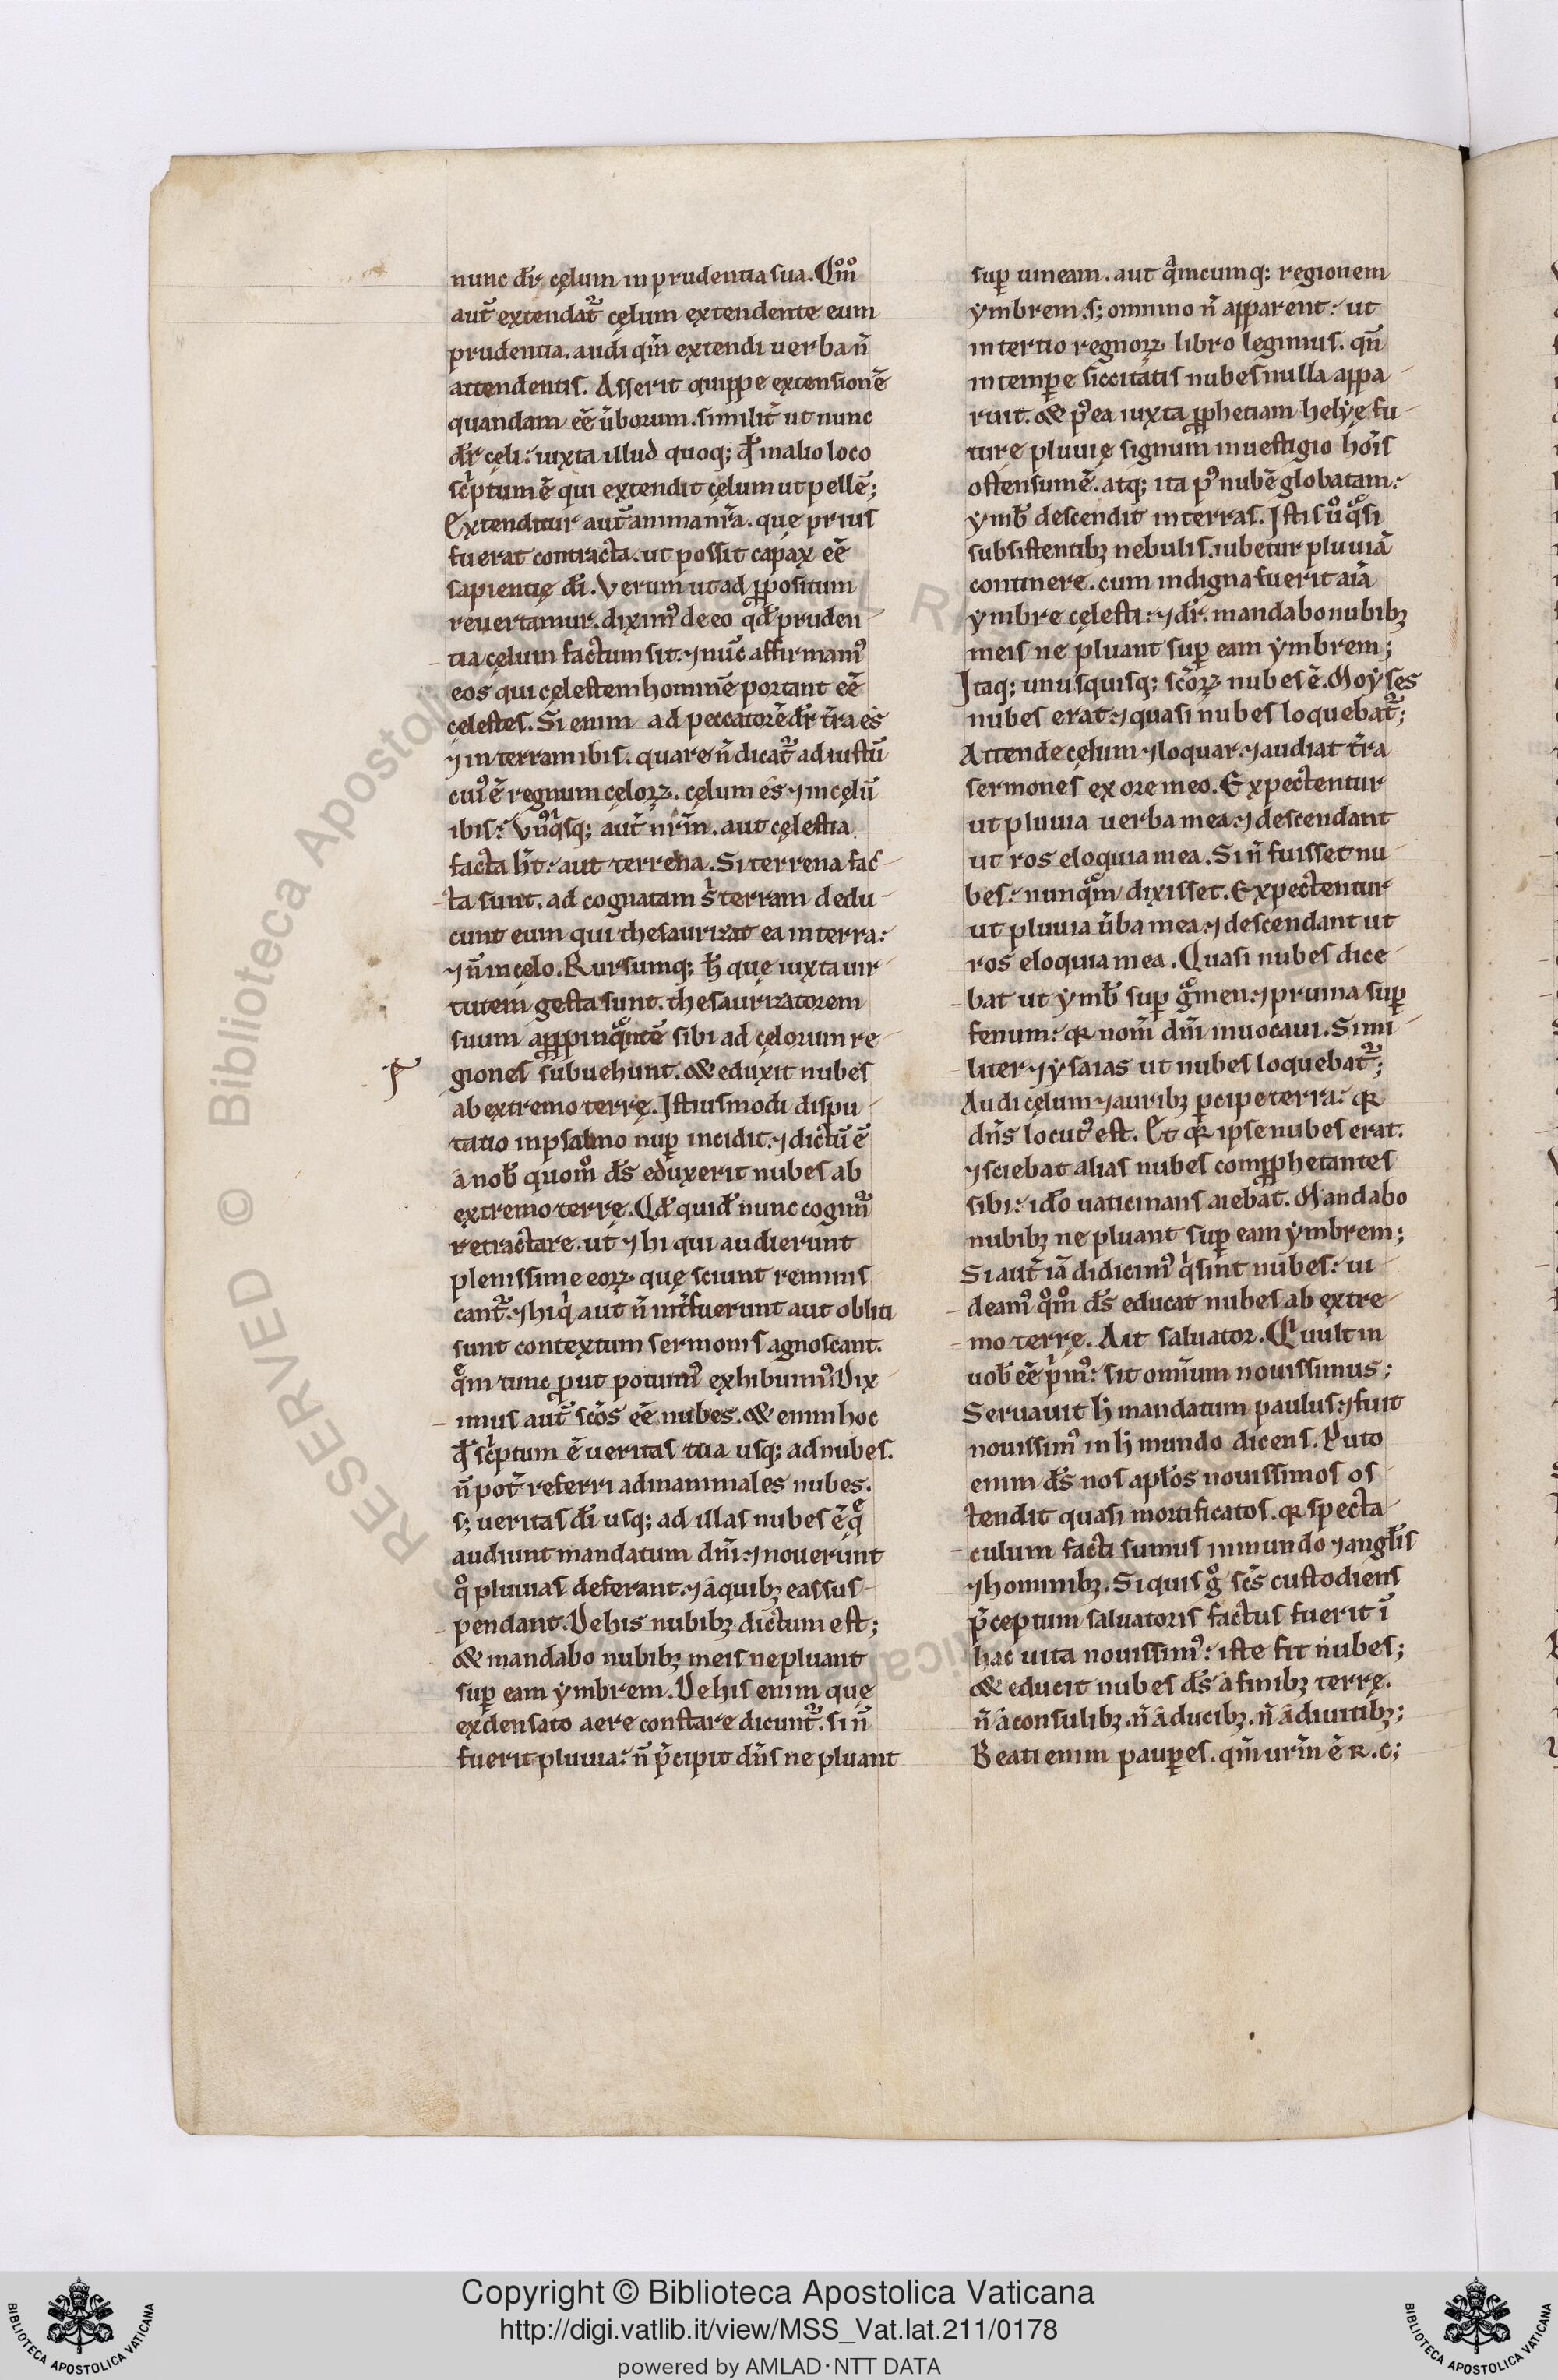 nunc dr̄ cęlum in prudentia sua. Qm̊o
aut̄ extendat᷑ cęlum extendente eum
prudentia. audi qm̄ extendi uerba n̄
attendentis. Asserit quippe extensionē
quandam eē ūborum. similit̄ ut nunc
dr̄ cęli: iuxta illud quoq; qđ in alio loco
scͥptum ē qui extendit cęlum ut pellē;
Extenditur aut̄ anima nr̄a. que prius
fuerat contracta. ut possit capax eē
sapientię dī. Verum ut ad ꝓpositum
reuertamur. diximꝰ de eo qđ pruden
tia cęlum factum sit. ⁊ nūc affirmamꝰ
eos qui cęlestem hominē portant eē
cęlestes. Si enim ad peccatorē dr̄ t̄ra es
⁊ in terram ibis. quare n̄ dicat᷑ ad iustū
cuiꝰ ē regnum cęloꝝ. cęlum es ⁊ in cęlū
ibis: Vn̄qͥsq; aut̄ nr̄m. aut cęlestia
facta h̄t: aut terrena. Si terrena fac
ta sunt. ad cognatam s̄ terram dedu
cunt eum qui thesaurizat ea in terra:
⁊ n̄ in cęlo. Rursumq; ħ que iuxta uir
tutem gesta sunt. thesaurizatorem
suum aꝓpinqͣntē sibi ad cęlorum re
giones subuehunt. & eduxit nubes
ab extremo terrę. Istiusmodi dispu
tatio in psalmo nuꝑ incidit. ⁊ dictū ē
a nob̄ quom̊ ds̄ eduxerit nubes ab
extremo terrę. Qđ quiđ nunc cogim᷑
retractare. ut ⁊ hi qui audierunt
plenissime eoꝝ que sciunt reminis
cant᷑. ⁊ hi qͥ aut n̄ int̄fuerunt aut obliti
sunt contextum sermonis agnoscant.
qͣm tunc ꝓut potuimꝰ exhibuimꝰ. Dix
imus aut̄ scōs eē nubes. & enim hoc
qđ scͥptum ē ueritas tua usq; ad nubes.
n̄ pot̄ referri ad inanimales nubes.
s; ueritas dī usq; ad illas nubes ē qͤ
audiunt mandatum dn̄i. ⁊ nouerunt
qͦ pluuias deferant. ⁊ a quibꝫ eas sus
pendant. De his nubibꝫ dictum est;
& mandabo nubibꝫ meis ne pluant
suꝑ eam ymbrem. De his enim que
ex densato aere constare dicunt᷑. si n̄
fuerit pluuia: n̄ p̄cipit dn̄s ne pluant
suꝑ uineam. aut qͣmcumq; regionem
ymbrem. s; omnino n̄ apparent: ut
in tertio regnoꝝ libro legimus. qn̄
in tempore siccitatis nubes nulla appa
ruit. & pꝰea iuxta ꝓphetiam helyę fu
ture pluuię signum in uestigio hoīs
ostensum ē. atq; ita pꝰ nubē globatam:
ymb̄ descendit in terras. Istis ů qͣsi
subsistentibꝫ nebulis. iubetur pluuiā
continere. cum indigna fuerit aīa
ymbre cęlesti: ⁊ dr̄. mandabo nubibꝫ
meis ne pluant suꝑ eam ymbrem;
Itaq; unusquisq; scōꝝ nubes ē. Moyses
nubes erat: ⁊ quasi nubes loquebat᷑;
Attende cęlum ⁊ loquar. ⁊ audiat t̄ra
sermones ex ore meo. Expectentur
ut pluuia uerba mea: ⁊ descendant
ut ros eloquia mea. Si n̄ fuisset nu
bes: nunqͣm dixisset. Expectentur
ut pluuia ūba mea: ⁊ descendant ut
ros eloquia mea. Quasi nubes dice
bat ut ymb̄ suꝑ gͣmen: ⁊ pruina suꝑ
fenum: qꝛ nom̄ dn̄i inuocaui. Simi
liter ⁊ ysaias ut nubes loquebat᷑;
Audi cęlum ⁊ auribꝫ ꝑcipe terra: qꝛ
dn̄s locutꝰ est. Et qꝛ ipse nubes erat.
⁊ sciebat alias nubes comꝓphetantes
sibi: iđo uaticinans aiebat. Mandabo
nubibꝫ ne pluant suꝑ eam ymbrem;
Si aut̄ iā didicimꝰ qͥ sint nubes: ui
deamꝰ qm̊o ds̄ educat nubes ab extre
mo terrę. Ait saluator. Qͥ uult in
uob̄ eē pͥmꝰ: sit omīum nouissimus;
Seruauit ħ mandatum paulus: ⁊ fuit
nouissimꝰ in ħ mundo dicens. Puto
enim ds̄ nos apl̄os nouissimos os
tendit quasi mortificatos. qꝛ specta
culum facti sumus in mundo ⁊ angl̄is
⁊ hominibꝫ. Si quis gͦ scs̄ custodiens
p̄ceptum saluatoris factus fuerit ī
hac uita nouissimꝰ: iste fit nubes;
& educit nubes ds̄ a finibꝫ terrę.
n̄ a consulibꝫ. n̄ a ducibꝫ. n̄ a diuitibꝫ;
Beati enim pauꝑes. qm̄ ur̄m ē R. c;
RESERVED © Biblioteca Apostolica Vaticana
Copyright © Biblioteca Apostolica Vaticana
http://digi.vatlib.it/view/MSS_Vat.lat.211/0178
powered by AMLAD·NTT DATA
BIBLIOTECA APOSTOLICA VATICANA
BIBLIOTECA APOSTOLICA VATICANA